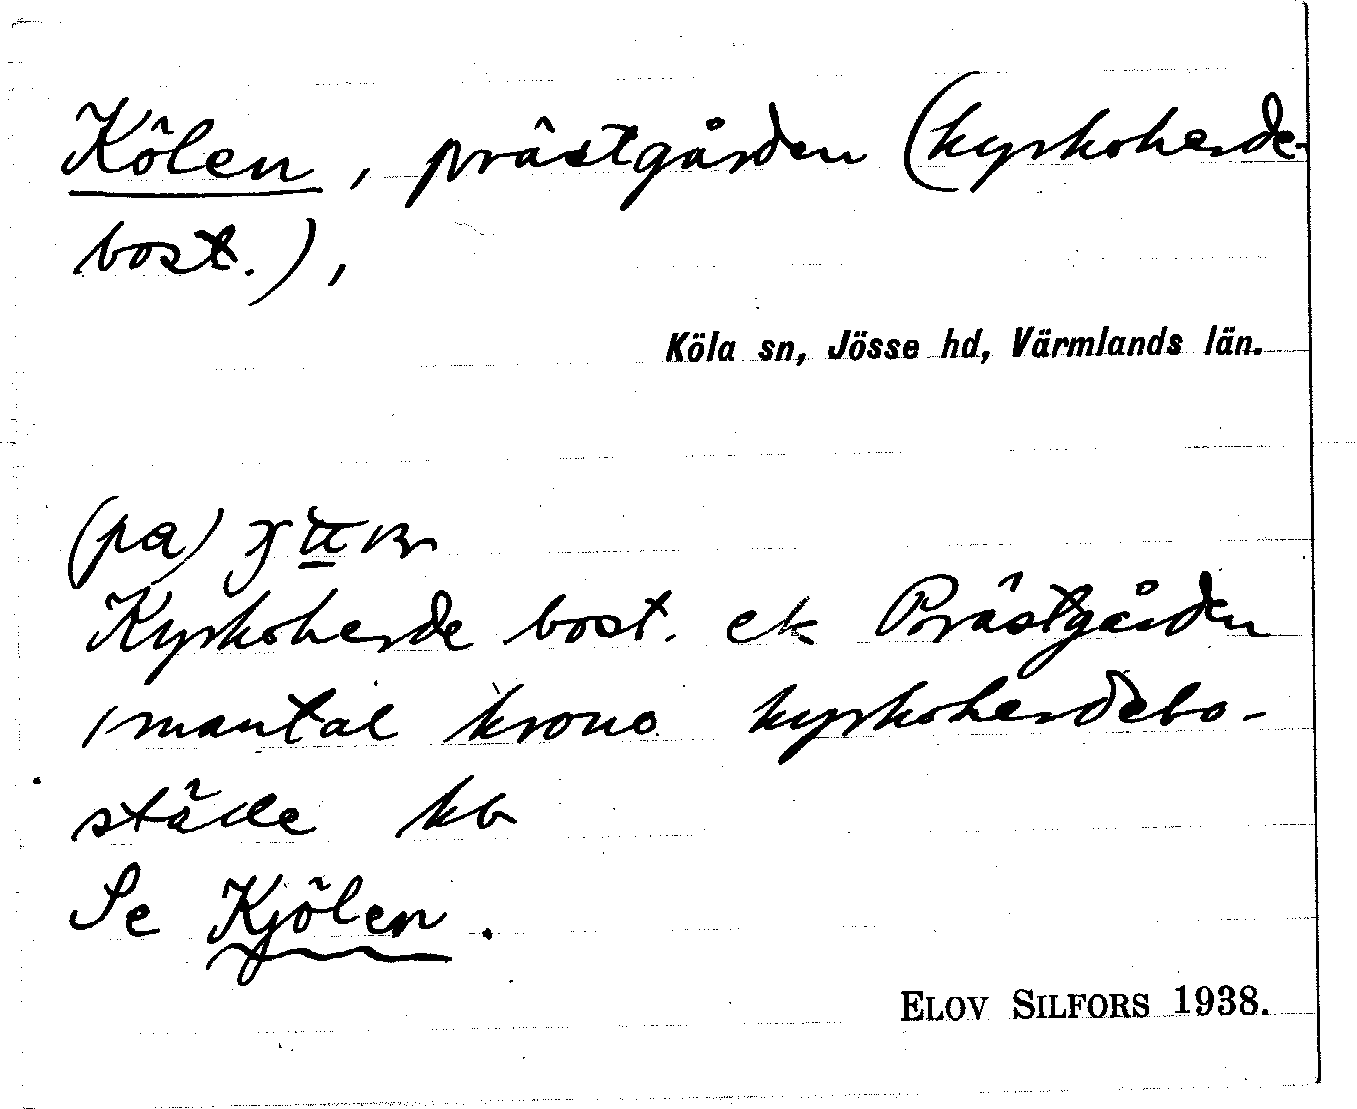 Kölen, prästgården (kyrkoherde-
bost.),
Köla sn, Jösse hd, Värmlands län.
(pa)
Kyrkoherde bost. ek Prästgården
1 mantal krono kyrkoherdebo-
ställe kb
Se Kjölen.
ELOV SILFORS 1938.